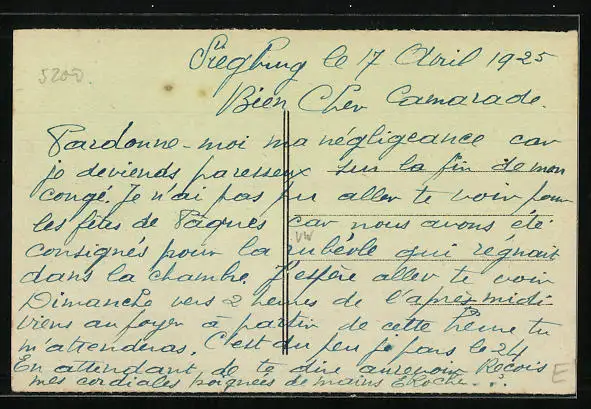 5200.
Siegburg le 17 Avril 1925
Bien Cher Camarade.
Pardonne-moi ma négligeance car
je deviends paresseux sur la fin de mon
congé. Je n'ai pas pu aller te voir pour
les fêtes de Pâques car nous avons été
consignés pour la rubéole qui régnait
dans la chambre. J'espère aller te voir
Dimanche vers 2 heures de l'après midi
viens au foyer à partir de cette heure tu
m'attenderas. C'est du feu je pars le 24
En attendant de te dire aurevoir Reçois
mes cordiales poignées de mains ERoche...
E